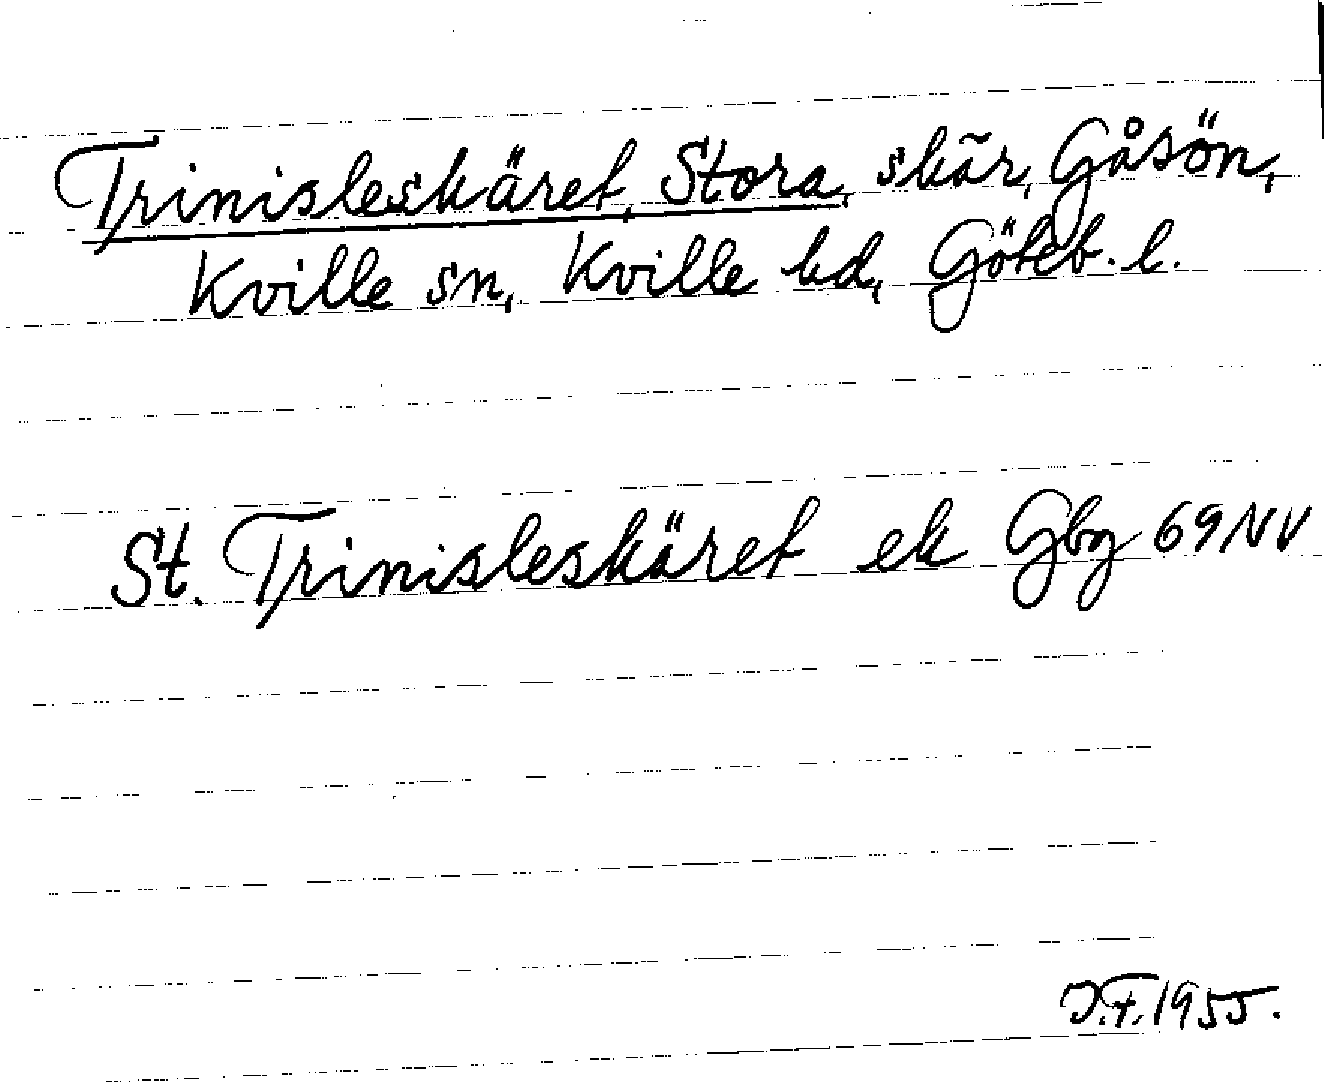 Trinisleskäret, Stora, skär, Gåsön,
Kville sn, Kville hd, Göteb. l.
St. Trinisleskäret ek Gbg 69 NV
J.F. 1955.